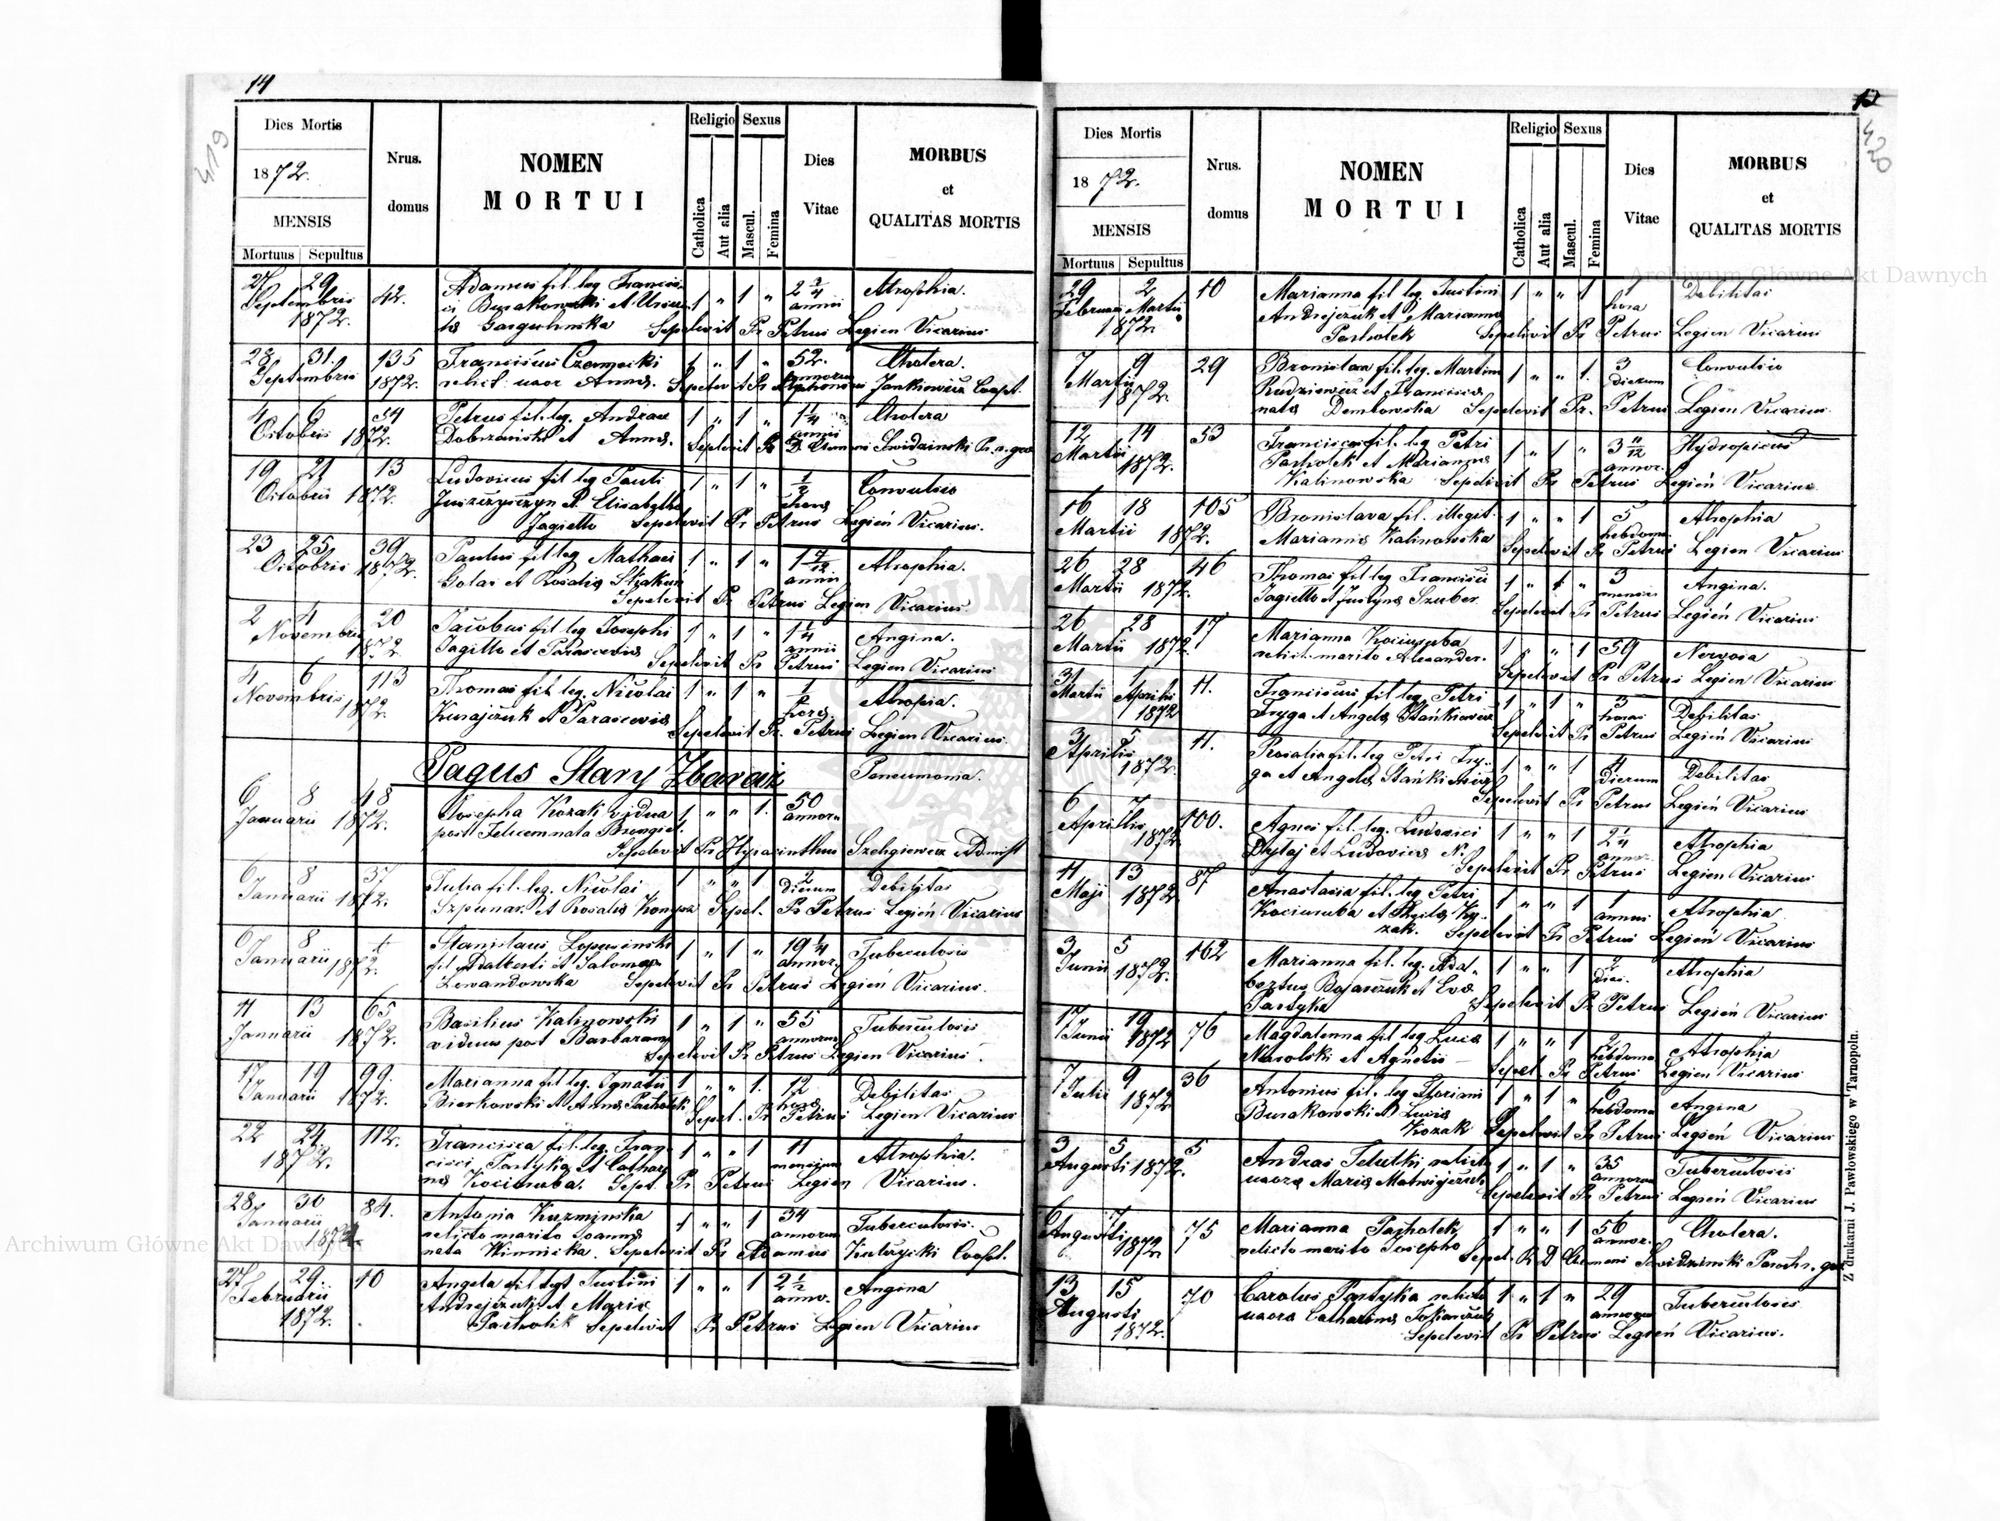 14
419
Dies Mortis
1872.
MENSIS
Mortuus Sepultus
Nrus.
domus
NOMEN
MORTUI
Religio Sexus
Catholica
Aut alia
Mascul.
Femina
Dies
Vitae
MORBUS
et
QUALITAS MORTIS
27 29 42. Adamus fil. leg. Francis- 1 " 1 " 2 3/4 Atrophia.
Septembris annii
1872. Sepelivit Pr Petrus Legien Vicarius
28 31. 135 Franciscus Czarnecki 1 " 1 " 52. Cholera.
Septembris 1872. relict. uxor Anna. annorum
4 6 54 Petrus fil. leg. Andrae 1 " 1 " 1 1/4 Cholera
Octobris 1872. Dobrzański et Anna.
19 21 13 Ludovicus fil leg Pauli 1 " 1 " 1/2 Convulsio
Octobris 1872. Elisabetha hora
Jagiełło Sepelivit Pr Petrus Legień Vicarius.
23 25 39 Paulus fil leg Mathaei 1 " 1 " Atrophia.
Octobris 1872. et Rosalia annii
Sepelivit Pr Petrus Legien Vicarius
2 4 20 Jacobus fil leg Josephi 1 " 1 " 1 1/4 Angina.
Novembris 1872. Jagiełło et Parascevia annii
Sepelivit Pr Petrus Legien Vicarius
4 6 113 Thomas fil. leg. Nicolai 1 " 1 " 1/2 Atrophia.
Novembris 1872. et Parascevia hora
Sepelivit Pr. Petrus Legien Vicarius
Pagus Stary Zbaraż Pneumonia.
6 8 48 Josepha Kozak vidua 1 " " 1. 50
Januarii 1872. annoru
Sepelivit Pr Hyacinthus
6 8 37 Julia fil. leg. Nicolai 1 " " 1 2 Debilitas
Januarii 1872. Szpunar et Rosalia dierum
Sepel. Pr Petrus Legień Vicarius
6 8 Stanislaus 1 " 1 " 19 1/4 Tuberculosis
Januarii 1872. fil Adalberti et Salomea annor.
Lewandowska Sepelivit Pr Petrus Legień Vicarius.
11 13 65 Basilius Kalinowski 1 " 1 " 55 Tuberculosis
Januarii 1872. viduus post Barbaram annorum
Sepelivit Pr Petrus Legien Vicarius.
17 19 99. Marianna fil leg. Ignatii 1 " " 1. 12 Debilitas
Januarii 1872. Bierkowski et Anna Pacholek hora
Sepel. Pr Petrus Legien Vicarius
22 24. 112. Francisca fil. leg. Fran- 1 " " 1 11 Atrophia.
1872. cisci Pastyka et Cathar. mensium
na Kociuruba. Sepel. Pr Petrus Legien Vicarius.
28 30 84. Antonia Kuzminska 1 " " 1 34 Tuberculosis.
Januarii relicto marito Joanne annorum
1872 nata Winnicka. Sepelivit Pr
27 29 10 Angela fil leg Justini 1 " " 1 2 1/2 Angina
Februarii Andrejczuk et Maria anno.
1872. Pacholik Sepelivit Pr Petrus Legien Vicarius
420
Dies Mortis
1872.
MENSIS
Mortuus Sepultus
Nrus.
domus
NOMEN
MORTUI
Religio Sexus
Catholica
Aut alia
Mascul.
Femina
Dies
Vitae
MORBUS
et
QUALITAS MORTIS
29 2 10 Marianna fil leg. Justini 1 " " 1 1 Debilitas
Februarii Martii Andrejczuk et Marianna hora
1872. Pacholek Sepelivit Pr Petrus Legien Vicarius
7 9 29 Bronislava fil. leg. Martini 1 " " 1. 3 Convulsio
Martii Rudziewicz et Francisca dierum
1872 nata Dembowska Sepelivit Pr. Petrus Legien Vicarius
12 14 53 Franciscus fil. leg Petri 1 " 1 " 3 11/12 Hydropicus
Martii Pacholek et Marianna annor.
1872. Kalinowska Sepelivit Pr Petrus Legień Vicarius
16 18 105 Bronislava fil. illegit. 1 " " 1 5 Atrophia
Martii 1872. Marianna Kalinowska hebdoma
Sepelivit Pr Petrus Legien Vicarius
26 28 46 Thomas fil leg Francisci 1 " 1 " 3 Angina.
Martii 1872. Jagiełło et Justyna Szuber mensis
Sepelivit Pr Petrus Legień Vicarius
26 28 17 Marianna Kociuruba 1 " " 1 59 Nervosa
Martii 1872 relict. marito Alexander.
Sepelivit Pr Petrus Legień Vicarius
31 1 11. Franciscus fil leg. Petri 1 " 1 " 3 Debilitas
Martii Aprilis Fryga et Angela Stańkiewicz horas
1872 Sepelivit Pr Petrus Legień Vicarius
3 5 11. Rosalia fil. leg Petri Fry- 1 " " 1 4 Debilitas
Aprilis 1872. ga et Angela Stańkiewicz dierum
Sepelivit Pr Petrus Legień Vicarius
6 7 100. Agnes fil. leg. Ludovici 1 " " 1 2 1/4 Atrophia
Aprilis 1872 et Ludovica N. annor.
Sepelivit Pr Petrus Legien Vicarius
11 13 87 Anastasia fil. leg Petri 1 " " 1 1 Atrophia
Maji 1872 Kociuruba et Thecla Ko- annus
zak. Sepelivit Pr Petrus Legień Vicarius
3 5 162 Marianna fil. leg. Adal- 1 " " 1 2 Atrophia
Junii 1872. bertus Bojarczuk et Eva dies.
Pastyka Sepelivit Pr Petrus Legień Vicarius
17 19 76 Magdalenna fil leg Luca 1 " " 1 2 Atrophia
Junii 1872 Nasolski et Agnetis hebdoma
Sepel. Pr Petrus Legien Vicarius
7 9 36 Antonius fil. leg Floriani 1 " 1 " 6 Angina
Julii 1872 Burakowski et Lucia hebdoma
Kozak Sepelivit Pr Petrus Legień Vicarius
3 5 5 Andreas relicta 1 " 1 " 35 Tuberculosis
Augusti 1872. uxore Maria annorum
Sepelivit Pr Petrus Legień Vicarius
6 7 75 Marianna Pacholek 1 " " 1 56 Cholera.
Augusti 1872 relicto marito Josepho annor.
13 15 70 Carolus Pastyka relicta 1 " 1 " 29 Tuberculosis
Augusti uxore Catharina annorum
1872. Sepelivit Pr Petrus Legień Vicarius.
Z drukarni J. Pawłowskiego w Tarnopolu.
Archiwum Główne Akt Dawnych
Archiwum Główne Akt Dawnych